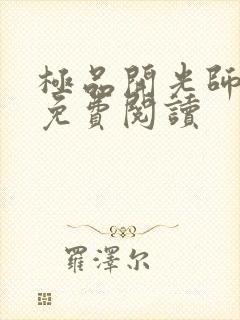 極品開光師
免費閱讀
羅澤尔